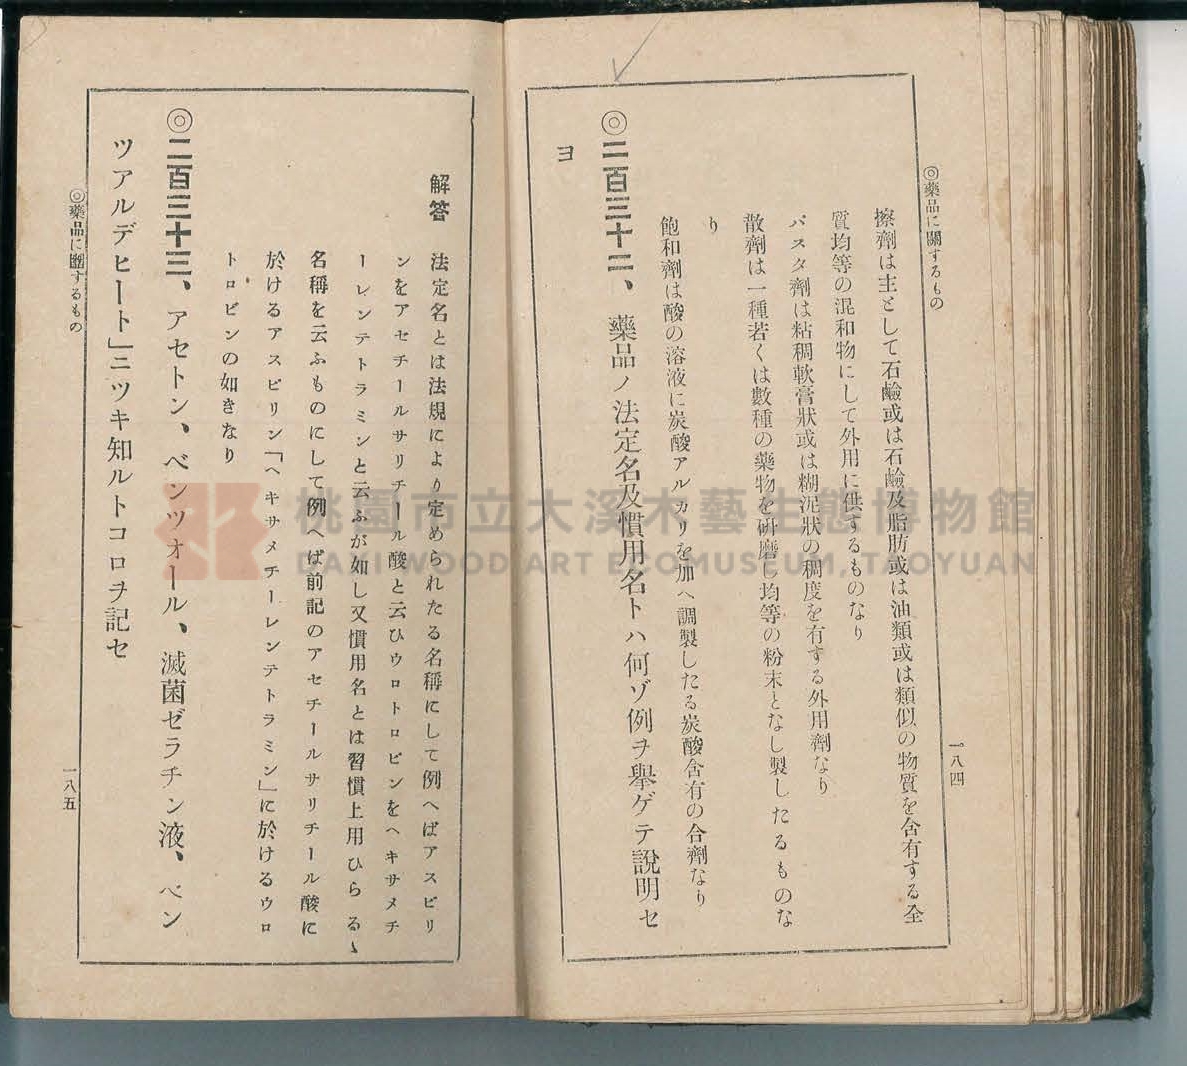 ◎藥品に關するもの
一八四
擦劑は主として石鹼或は石鹼及脂肪或は油類或は類似の物質を含有する全
質均等の混和物にして外用に供するものなり
パスタ劑は粘稠軟膏狀或は糊泥狀の稠度を有する外用劑なり
散劑は一種若くは數種の藥物を硏磨し均等の粉末となし製したるものな
り
飽和劑は酸の溶液に炭酸アルカリを加へ調製したる炭酸含有の合劑なり
◎二百三十二、藥品ノ法定名及慣用名トハ何ゾ例ヲ擧ゲテ說明セ
ヨ
解答 法定名とは法規により定められたる名稱にして例へばアスピリ
ンをアセチールサリチール酸と云ひウロトロピンをヘキサメチ
ーレンテトラミンと云ふが如し又慣用名とは習慣上用ひらるゝ
名稱を云ふものにして例へば前記のアセチールサリチール酸に
於けるアスピリン「ヘキサメチーレンテトラミン」に於けるウロ
トロピンの如きなり
◎二百三十三、アセトン、ベンツオール、滅菌ゼラチン液、ベン
ツアルデヒート」ニツキ知ルトコロヲ記セ
◎藥品に關するもの
一八五
桃園市立大溪木藝生態博物館
DAXI WOOD ART ECOMUSEUM, TAOYUAN